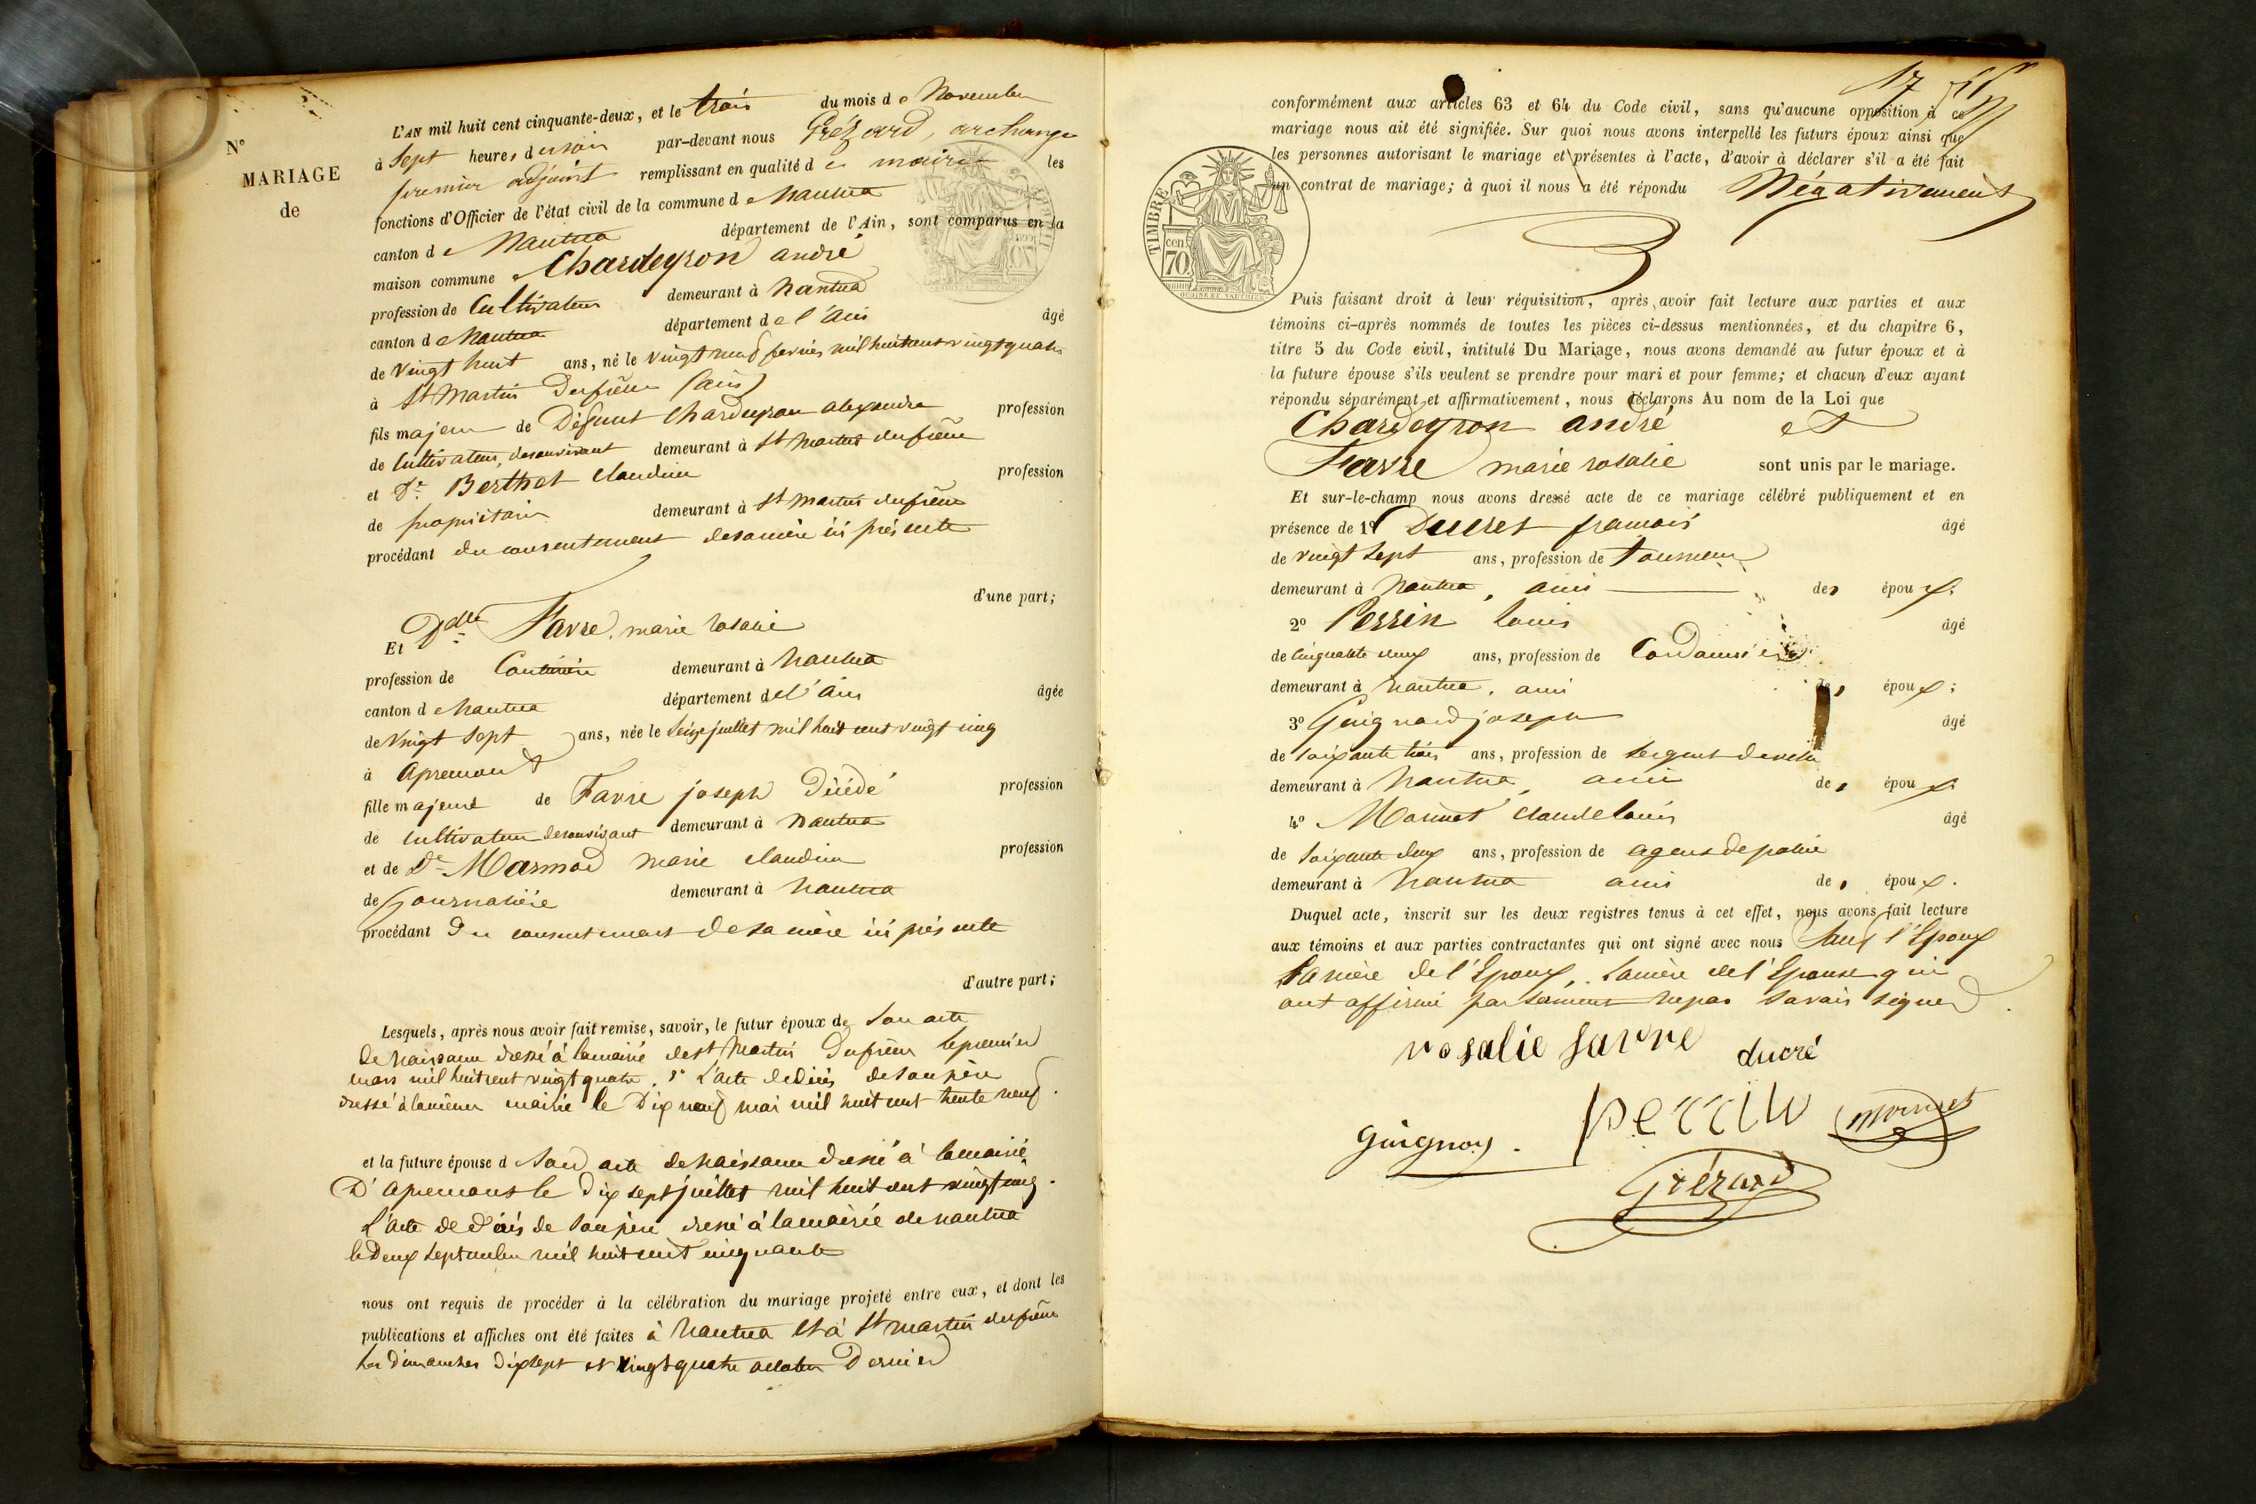 N°
MARIAGE
de
L'AN mil huit cent cinquante-deux, et le trois du mois de Novembre
à Sept heures du soir par-devant nous Grézard, archange
premier adjoint remplissant en qualité de maire les
fonctions d'Officier de l'état civil de la commune de Nantua
canton de Nantua département de l'Ain, sont comparus en la
maison commune Chardeyron andré
profession de Cultivateur demeurant à Nantua
canton de Nantua département de l'ain âgé
de vingt huit ans, né le vingt neuf fevrier mil huit cent vingt quatre
à St Martin Dufrêne (ain)
fils majeur de Défunt Chardeyron alexandre profession
de Cultivateur, desonvivant demeurant à St Martin dufrêne
et De Berthet claudine profession
de propriétaire demeurant à St Martin dufrêne
procédant du consentement desamère ici présente
d'une part;
Et Delle Favre, marie rosalie
profession de Couturière demeurant à Nantua
canton de Nantua département de l'ain âgée
de vingt sept ans, née le Seize juillet mil huit cent vingt cinq
à apremont
fille majeure de Favre joseph Décédé profession
de cultivateur desonvivant demeurant à Nantua
et de De Marmod marie claudine profession
de Journalière demeurant à Nantua
procédant du consentement de sa mère ici présente
d'autre part;
Lesquels, après nous avoir fait remise, savoir, le futur époux de Son acte
de naissance dressé à lamairie de St Martin Dufrêne le premier
mars mil huit cent vingt quatre. 2° L'acte de décès de son père
dressé à la même mairie le Dix neuf mai mil huit cent trente neuf.
et la future épouse d Son acte de naissance dressé à la mairie
D'apremont le dix sept juillet mil huit cent vingt cinq.
L'acte de décès de son père dressé à la mairie de nantua
le Deux septembre mil huit cent cinquante
nous ont requis de procéder à la célébration du mariage projeté entre eux, et dont les
publications et affiches ont été faites à Nantua et à St martin dufrêne
les Dimanches dix sept et vingt quatre octobre Dernier
17
conformément aux articles 63 et 64 du Code civil, sans qu'aucune opposition à ce
mariage nous ait été signifiée. Sur quoi nous avons interpellé les futurs époux ainsi que
les personnes autorisant le mariage et présentes à l'acte, d'avoir à déclarer s'il a été fait
un contrat de mariage; à quoi il nous a été répondu Négativement
TIMBRE
cen.
70
Puis faisant droit à leur réquisition, après avoir fait lecture aux parties et aux
témoins ci-après nommés de toutes les pièces ci-dessus mentionnées, et du chapitre 6,
titre 5 du Code civil, intitulé Du Mariage, nous avons demandé au futur époux et à
la future épouse s'ils veulent se prendre pour mari et pour femme; et chacun d'eux ayant
répondu séparément et affirmativement, nous déclarons Au nom de la Loi que
Chardeyron andré et
Favre marie rosalie sont unis par le mariage.
Et sur-le-champ nous avons dressé acte de ce mariage célébré publiquement et en
présence de 1° Ducret francois âgé
de vingt sept ans, profession de tourneur
demeurant à Nantua, ami des époux;
2° Perrin Louis âgé
de Cinquante deux ans, profession de Cordonnier
demeurant à Nantua, ami des époux;
3° Guignard joseph âgé
de soixante trois ans, profession de sergent deville
demeurant à Nantua, ami des époux
4° Monnet claude louis âgé
de soixante deux ans, profession de agent de police
demeurant à Nantua ami des époux.
Duquel acte, inscrit sur les deux registres tenus à cet effet, nous avons fait lecture
aux témoins et aux parties contractantes qui ont signé avec nous Sauf l'Epoux
la mère de l'Epoux, la mère de l'Epouse qui
ont affirmé par serment ne pas savoir signer.
rosalie favre ducré
Guignoy. perrin monnet
Grézard